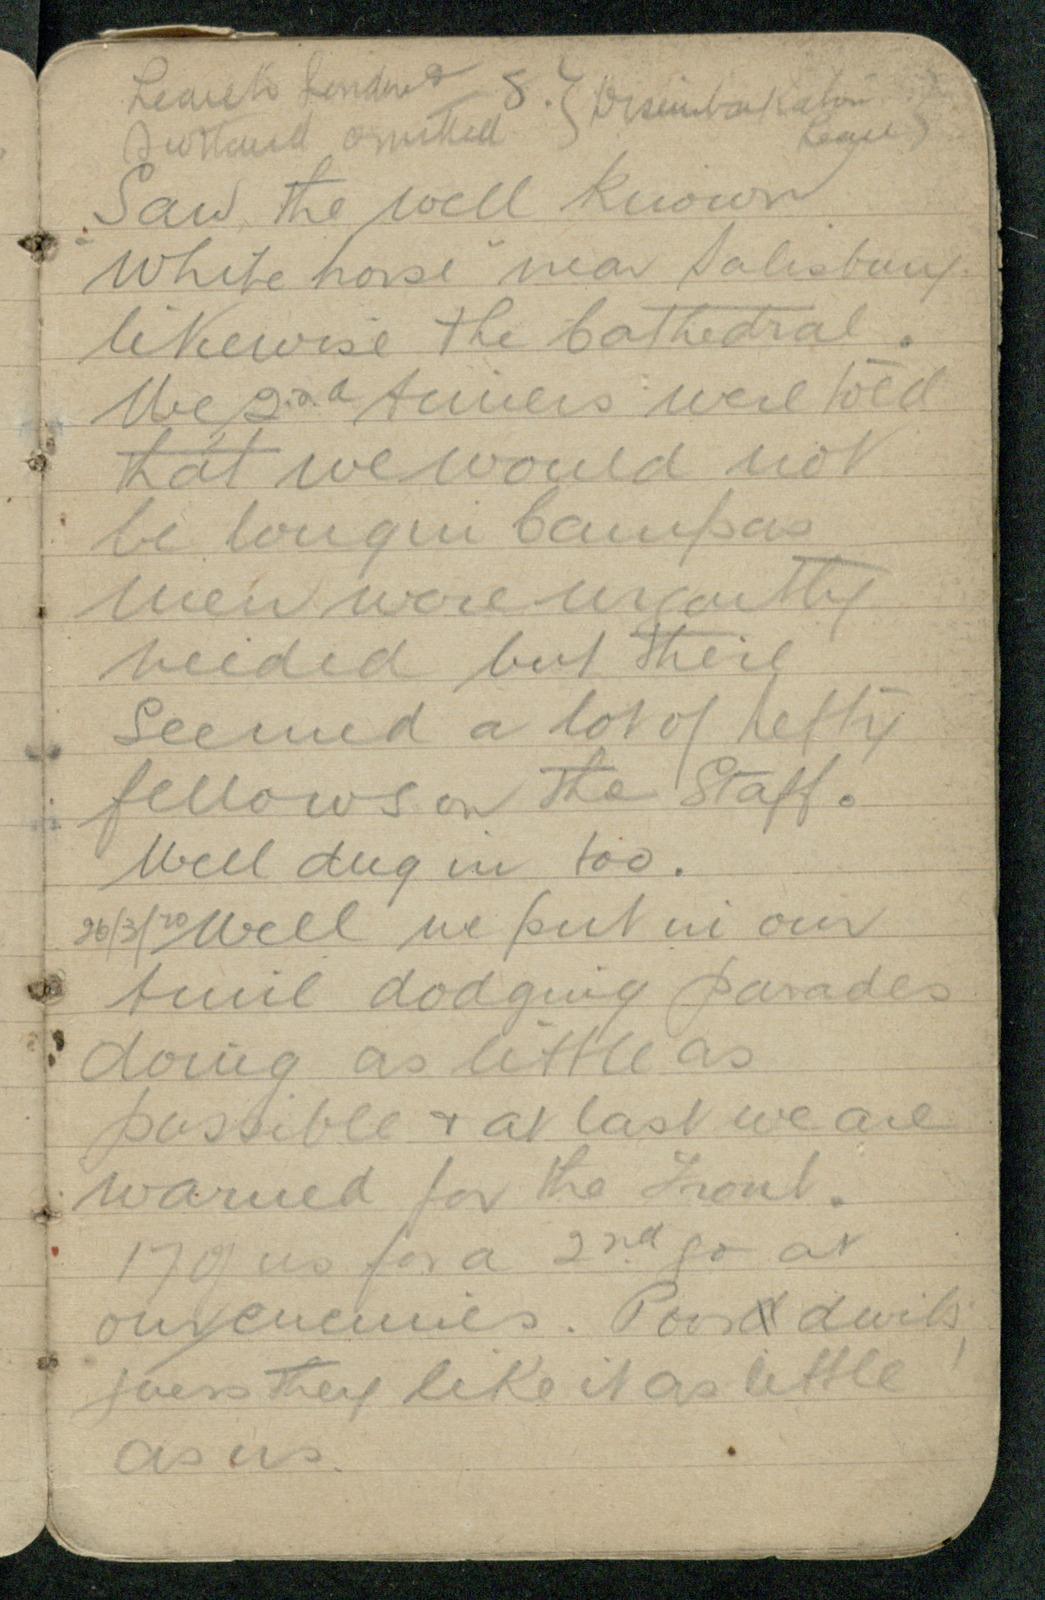 Leave to London & 8. { Disembarkation }
Scotland omitted Leave
Saw the well known
"White horse" near Salisbury
likewise the Cathedral.
We 2nd timers were told
that we would not
be long in Camp as
men were urgently
needed but there
seemed a lot of hefty
fellows on the Staff.
Well dug in too.
26/3/ Well we put in our
time dodging parades
doing as little as
possible & at last we are
warned for the Front.
170 of us for a 2nd go at
our enemies. Poor devils,
guess they like it as little
as us.